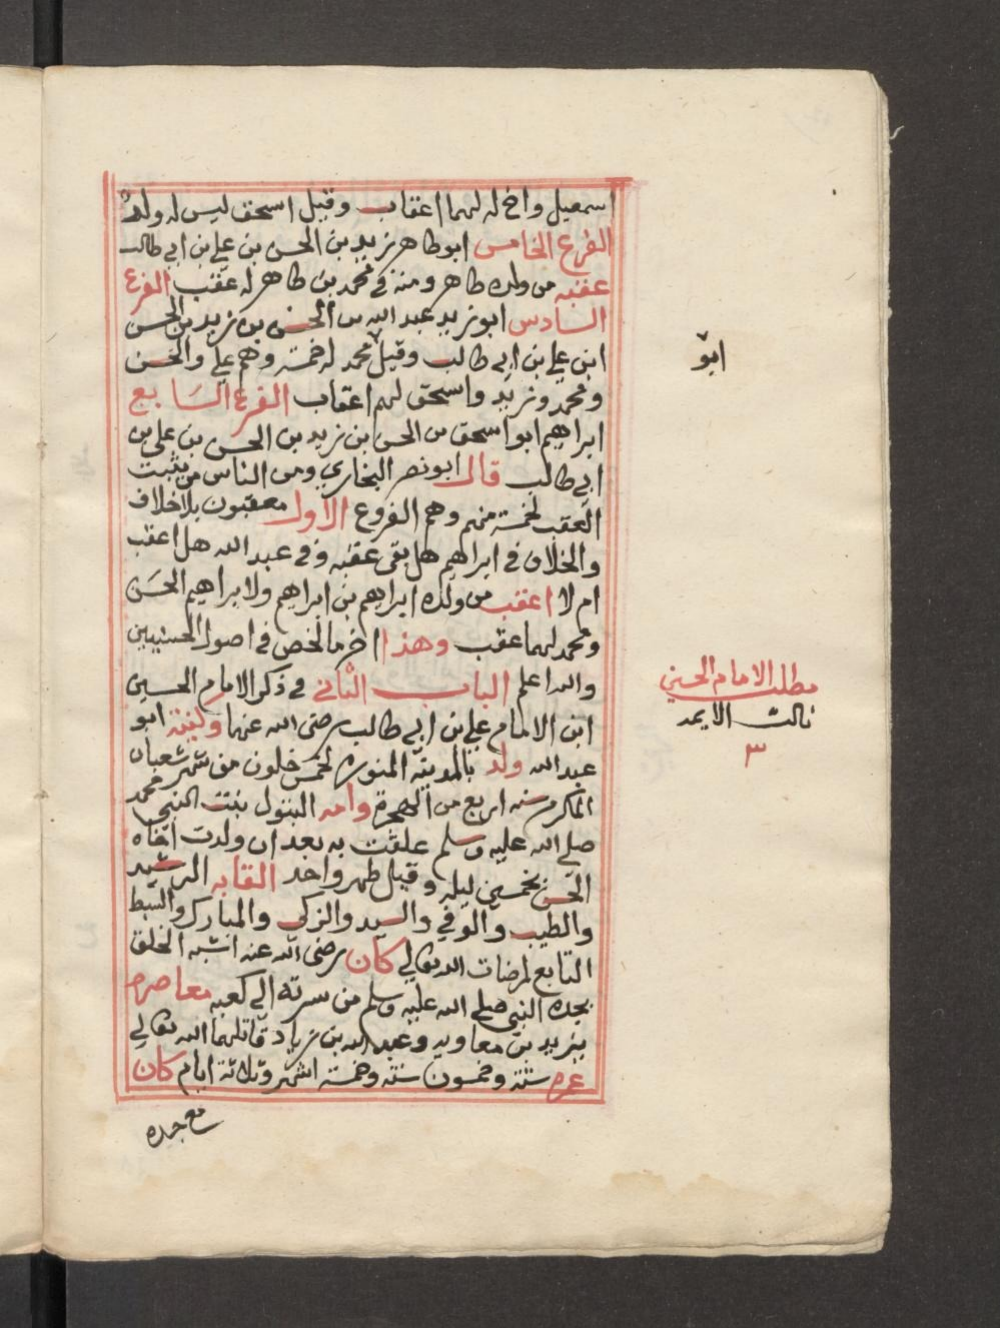 اسمعيل واخ له لهما اعقاب وقيل اسحق ليس له ولد
الفرع الخامس ابو طاهر زيد بن الحسن بن علي بن ابي طالب
عقبه من ولده طاهر ومنه في محمد بن طاهر له عقب الفرع
السادس ابو زيد عبد الله بن الحسن بن زيد بن الحسن
ابن علي بن ابي طالب وقيل محمد له خمسة وهم علي والحسن
ومحمد وزيد واسحق لهم اعقاب الفرع السابع
ابراهيم ابو اسحق بن الحسن بن زيد بن الحسن بن علي بن
ابي طالب قال ابو نصر البخاري ومن الناس من يثبت
العقب لخمسة منهم وهم الفروع الاول معقبون بلا خلاف
والخلاف في ابراهيم هل بقى عقبه وفي عبد الله هل اعقب
ام لا اعقب من ولده ابراهيم بن ابراهيم ولابراهيم الحسن
ومحمد لهما عقب وهذا اخر ما لخص في اصول الحسنيين
والله اعلم الباب الثاني في ذكر الامام الحسين
ابن الامام علي بن ابي طالب رضى الله عنهما وكنيته ابو
عبد الله ولد بالمدينة المنورة لخمس خلون من شهر شعبان
المكرم سنه اربع من الهجرة وامه البتول بنت النبي محمد
صلى الله عليه وسلم علقت به بعد ان ولدت اخاه
الحسن بخمسين ليله وقيل طهر واحد القابه الرشيد
والطيب والوفي والسيد والزكي والمبارك والسبط
التابع لمرضات الله تعالي كان رضى الله عنه اشبه الخلق
بجده النبي صلى الله عليه وسلم من سرته الى كعبه معاصره
يزيد بن معاويه وعبد الله بن زياد قاتلهما الله تعالي
عمره ستة وخمسون سنه وخمسة اشهر وثلاثة ايام كان
مع جده
ابو
مطلب الامام الحسين
ثالث الايمه
٣